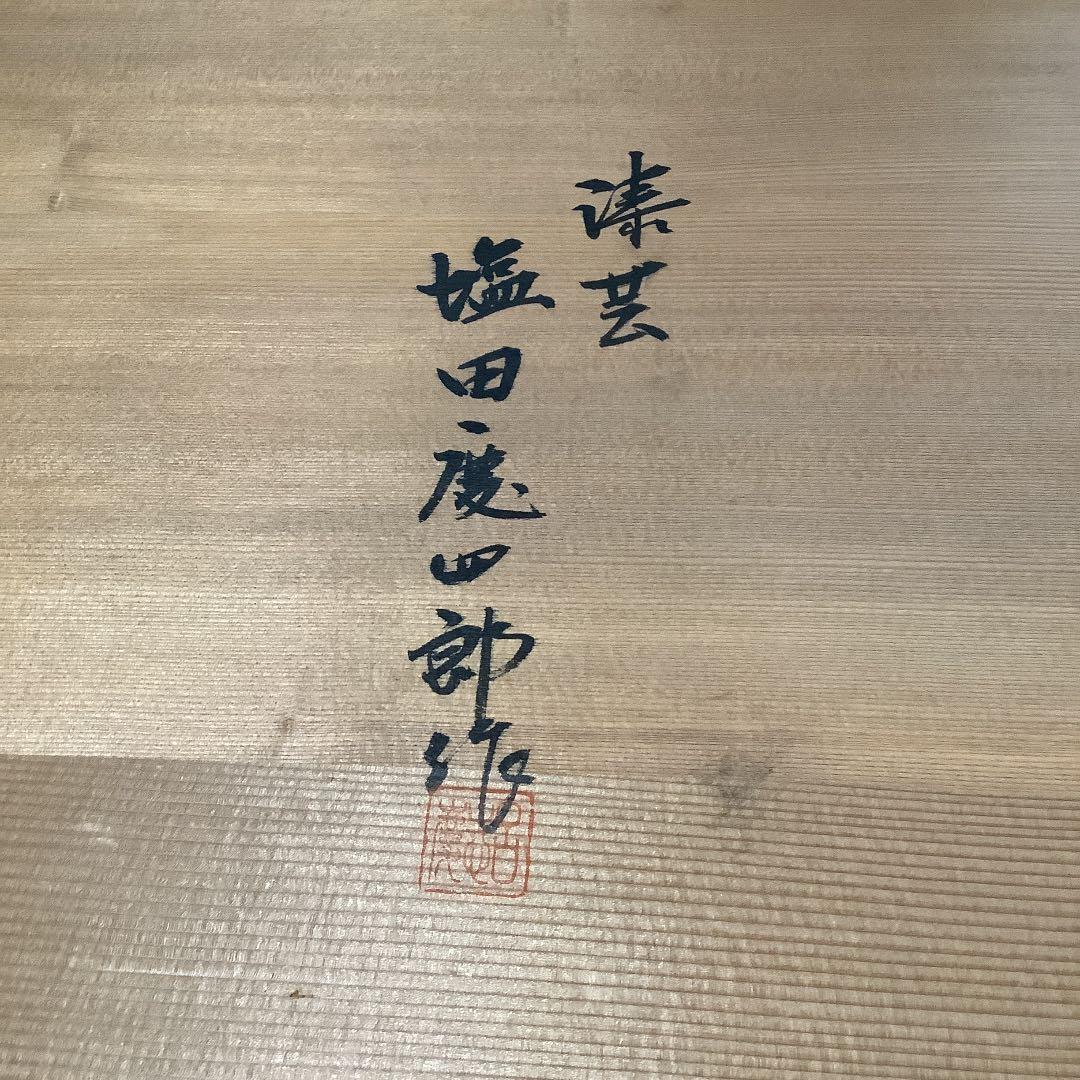 漆芸
塩田慶四郎作